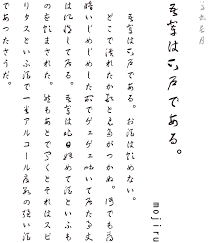 吾輩は下戸である。
mojiru
吾輩は下戸である。お酒は飲めない。
どこで潰れたか頓と見当がつかぬ。何でも薄
暗いじめじめした所でゲェゲェ吐いて居た事丈
は記憶して居る。吾輩は昨日始めて酒といふも
のを飲まされた。然もあとで聞くとそれはスピ
リタスといふ酒で一番アルコール度数の強い酒
であつたさうだ。